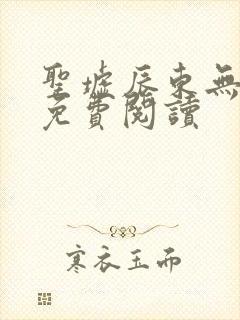 聖墟辰東無
免費閱讀
寒衣玉而